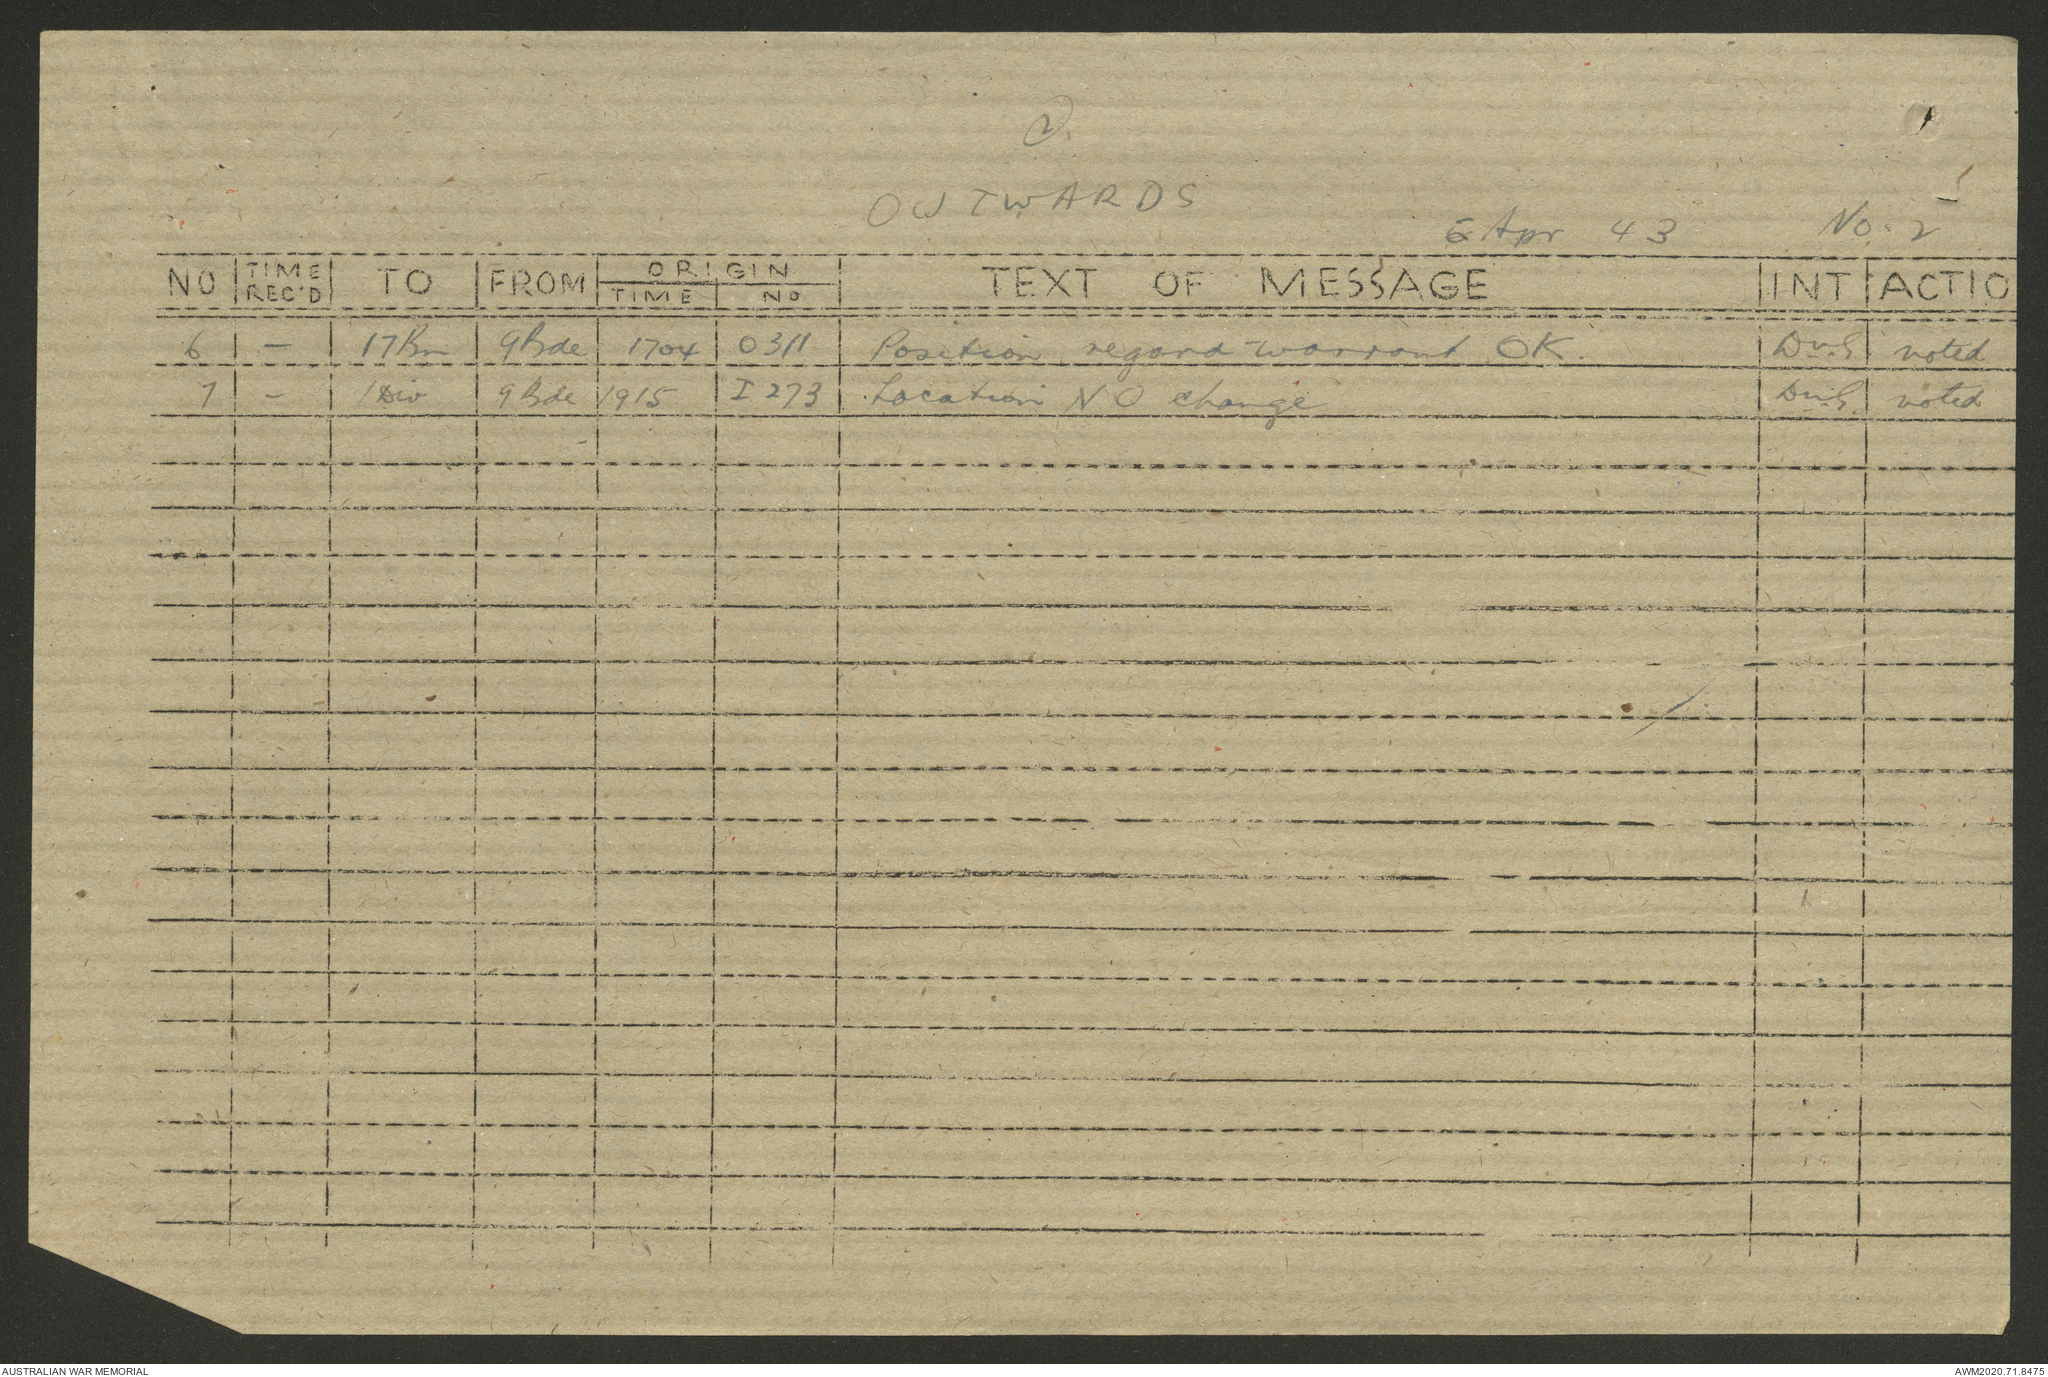 2.
OUTWARDS
6 Apr 43 No. 2
NO TIME REC'D TO FROM ORIGIN TIME NO TEXT OF MESSAGE INT ACTIO
6 - 17 Bn 9 Bde 1704 0311 Position regard warrant OK. noted
7 - 1 Div 9 Bde 1915 I 273 Location NO change noted
AUSTRALIAN WAR MEMORIAL AWM2020.71.8475